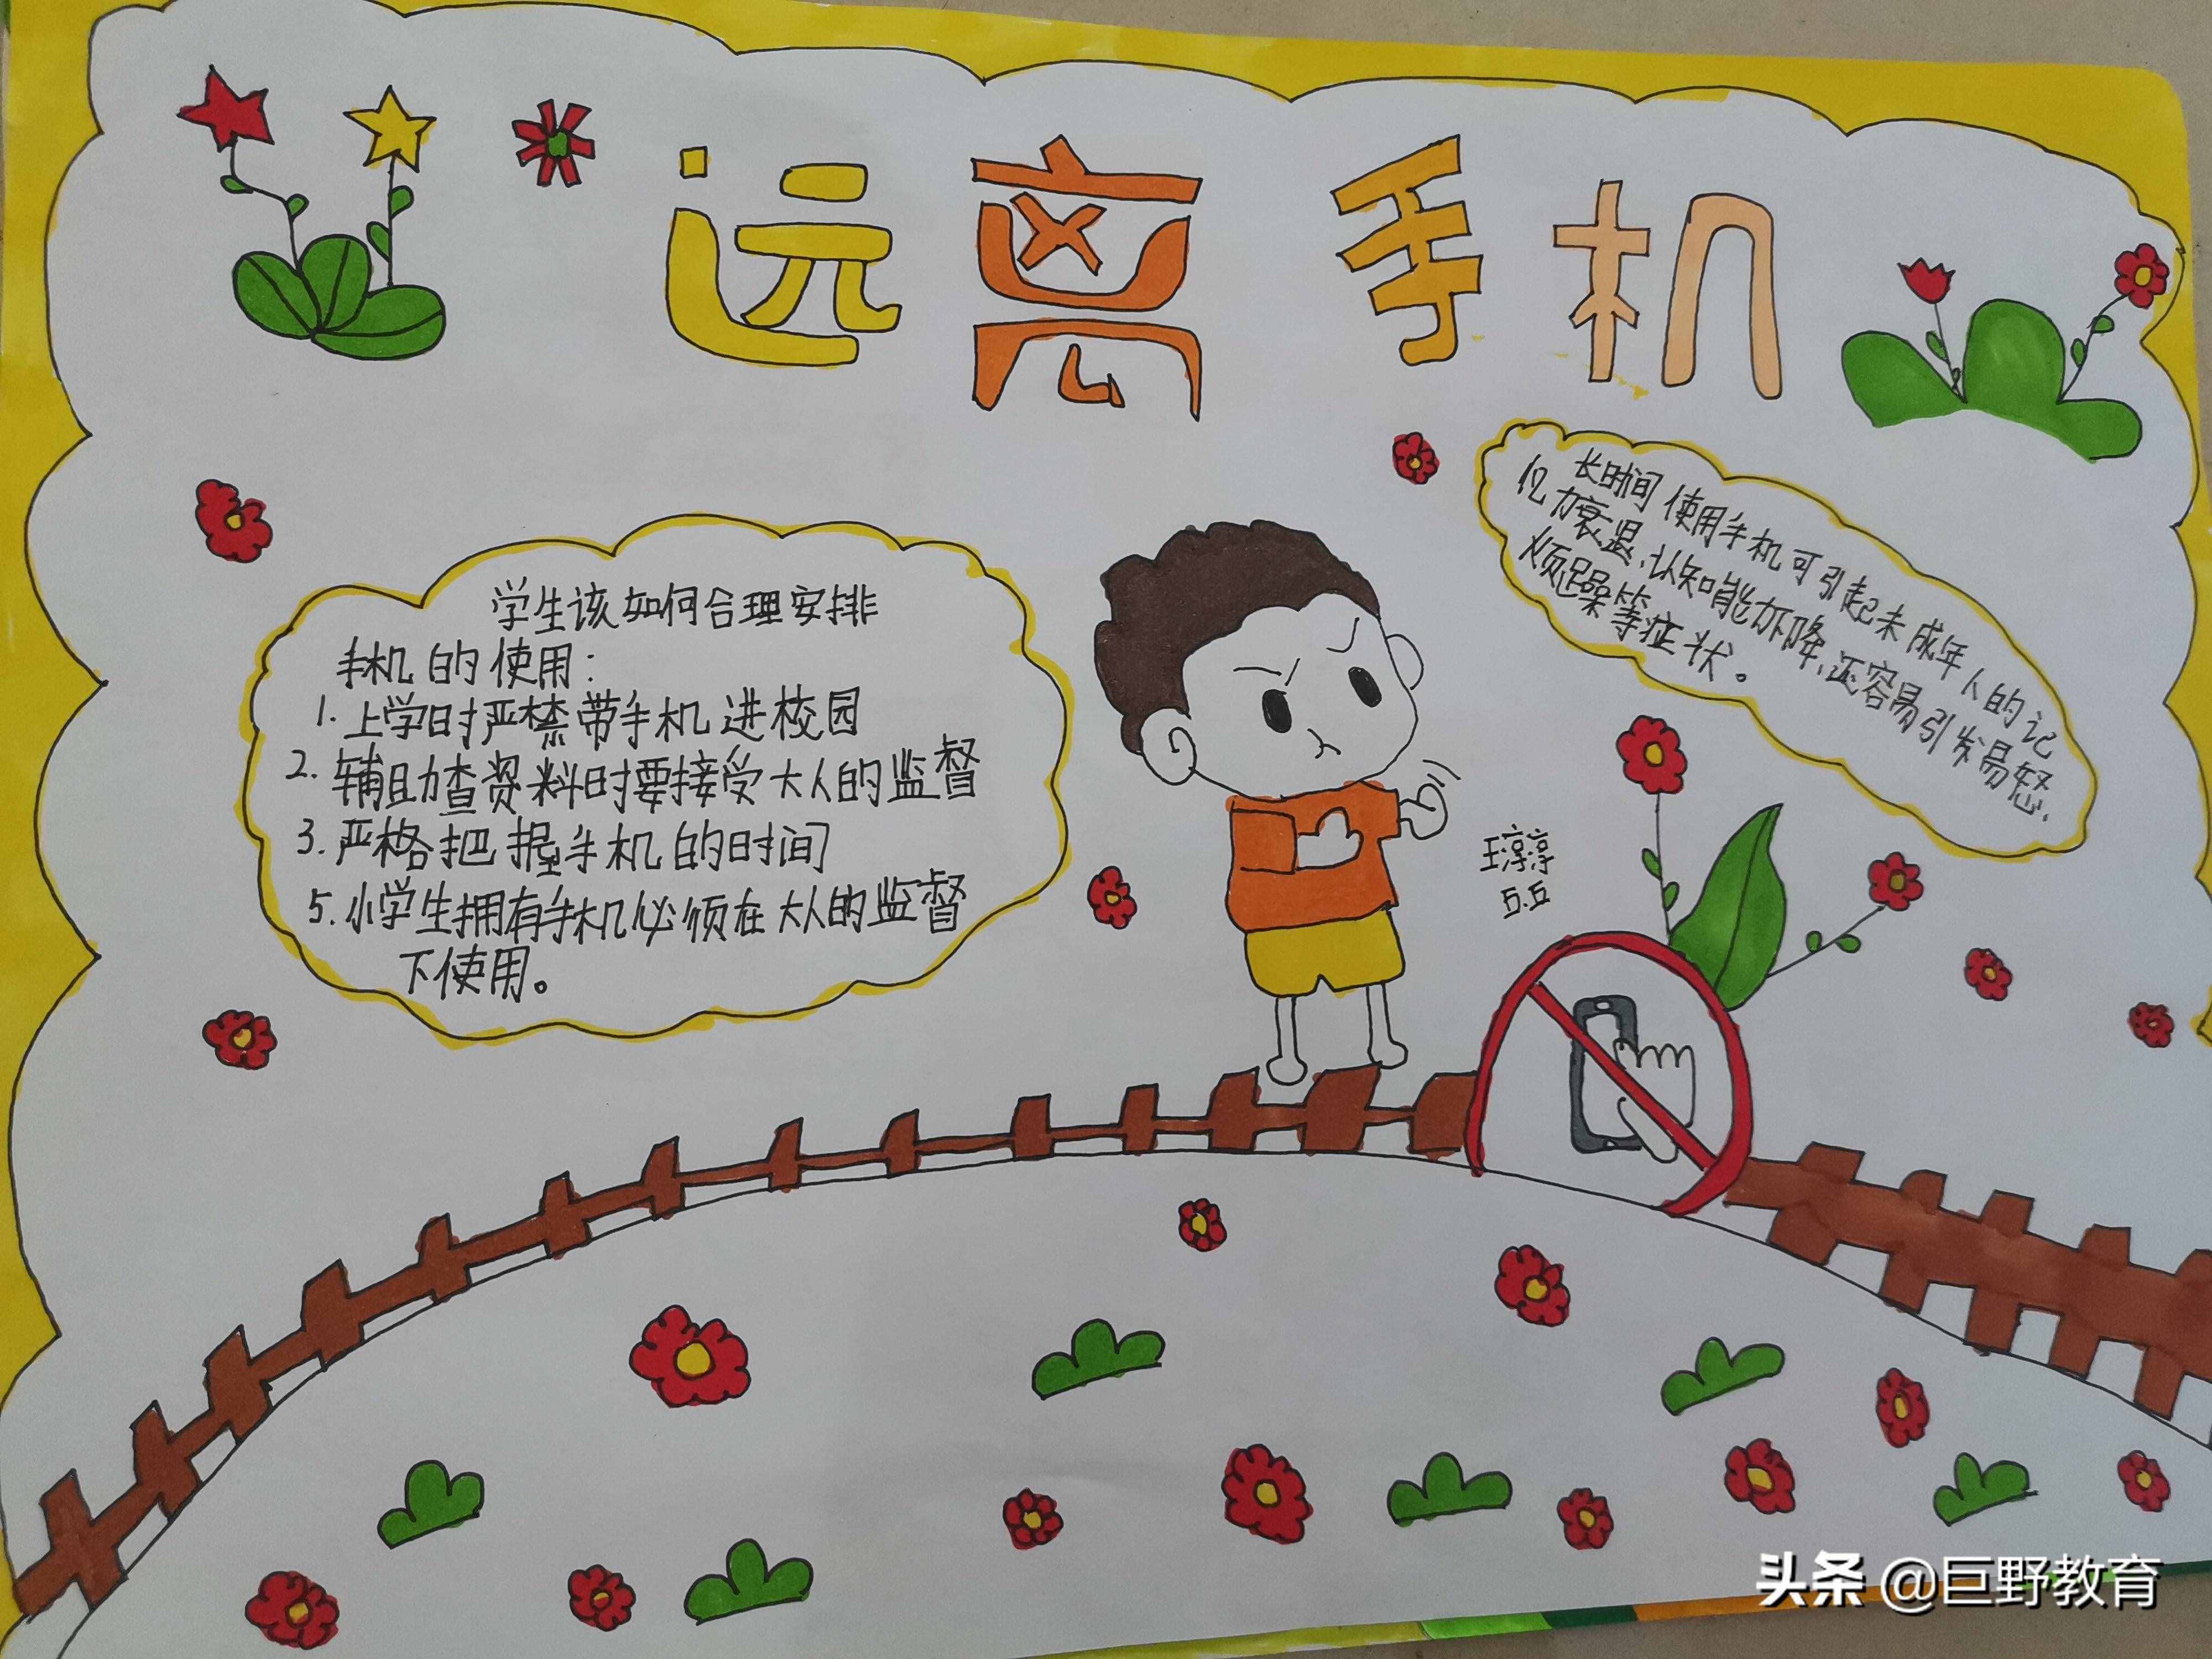 远离手机
长时间使用手机可引起未成年人的记
忆力衰退、认知能力下降,还容易引发易怒、
烦躁等症状。
学生该如何合理安排
手机的使用:
1. 上学时严禁带手机进校园
2. 辅助查资料时要接受大人的监督
3. 严格把握手机的时间
5. 小学生拥有手机必须在大人的监督
下使用。
王淳淳
5.5
头条 @巨野教育